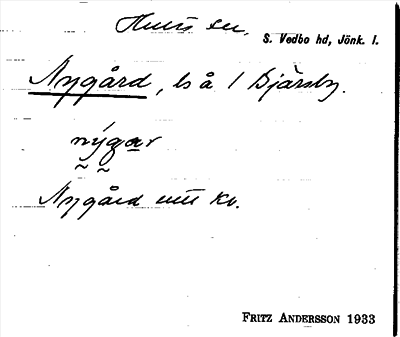 S. Vedbo hd, Jönk. l.
Nygård, ls å 1 Bjärsby.
nýgar
Nygård
FRITZ ANDERSSON 1933